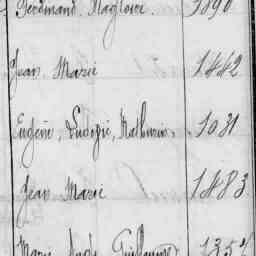 Ferdinand, Magloire. 1890
Jean Marie 1442
Eugène, Mathurin. 1031
Jean Marie 1483
Marie Ange Guillaume 135